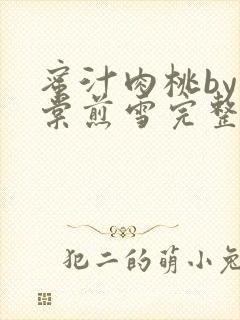 蜜汁肉桃by
棠煎雪完整
犯二的萌小兔